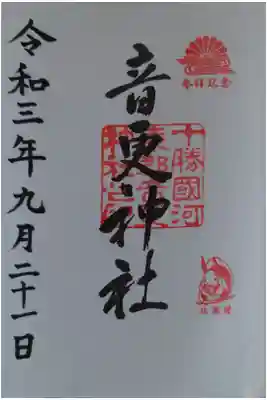 参拝記念
音更神社
十勝國河
令和三年九月二十一日